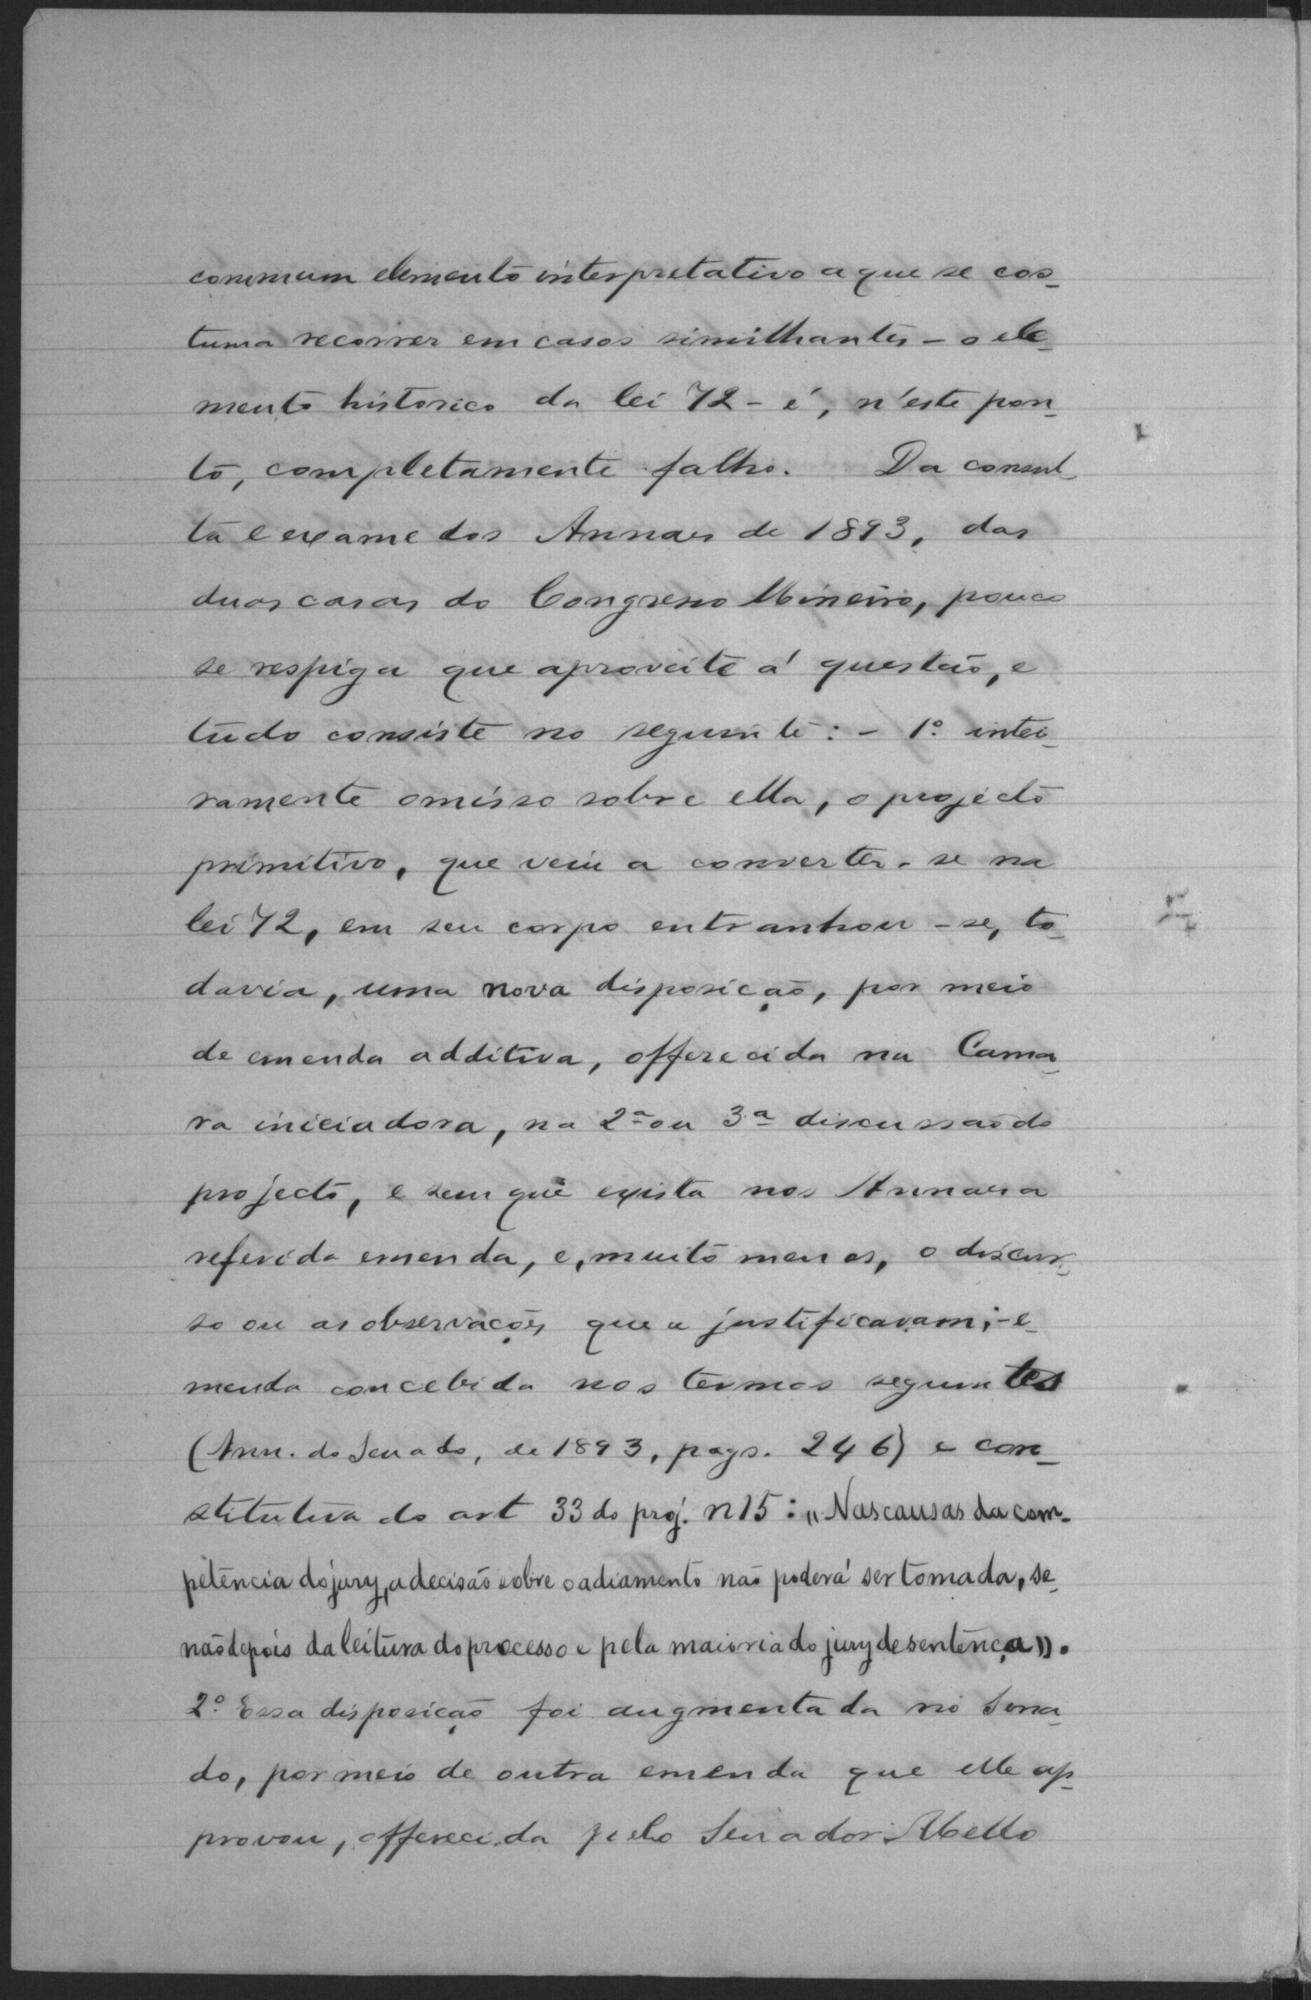 commum elemento interpretativo a que se cos-
tuma recorrer em casos similhantes - o ele-
mento historico da lei 72 - é, n'este pon-
to, completamente falho. Da consul-
ta e exame dos Annaes de 1893, das
duas casas do Congresso Mineiro, pouco
se respiga que aproveite á questão, e
tudo consiste no seguinte: - 1º intei-
ramente omisso sobre ella, o projecto
primitivo, que veiu a converter-se na
lei 72, em seu corpo entranhou-se, to-
davia, uma nova disposição, por meio
de emenda additiva, offerecida na Cama-
ra iniciadora, na 2ª ou 3ª discussão do
projecto, e sem que exista nos Annaes a
referida emenda, e, muito menos, o discur-
so ou as observações que a justificavam; - e-
menda concebida nos termos seguintes
(Ann. do Senado, de 1893, pags. 246) e con-
stitutiva do art 33 do proj. n 15: "Nas causas da com-
petencia do jury, a decisão sobre o adiamento não poderá ser tomada, se-
não depois da leitura do processo e pela maioria do jury de sentença".
2º Essa disposição foi augmentada no Sena-
do, por meio de outra emenda que elle ap-
provou, offerecida pelo Senador Mello